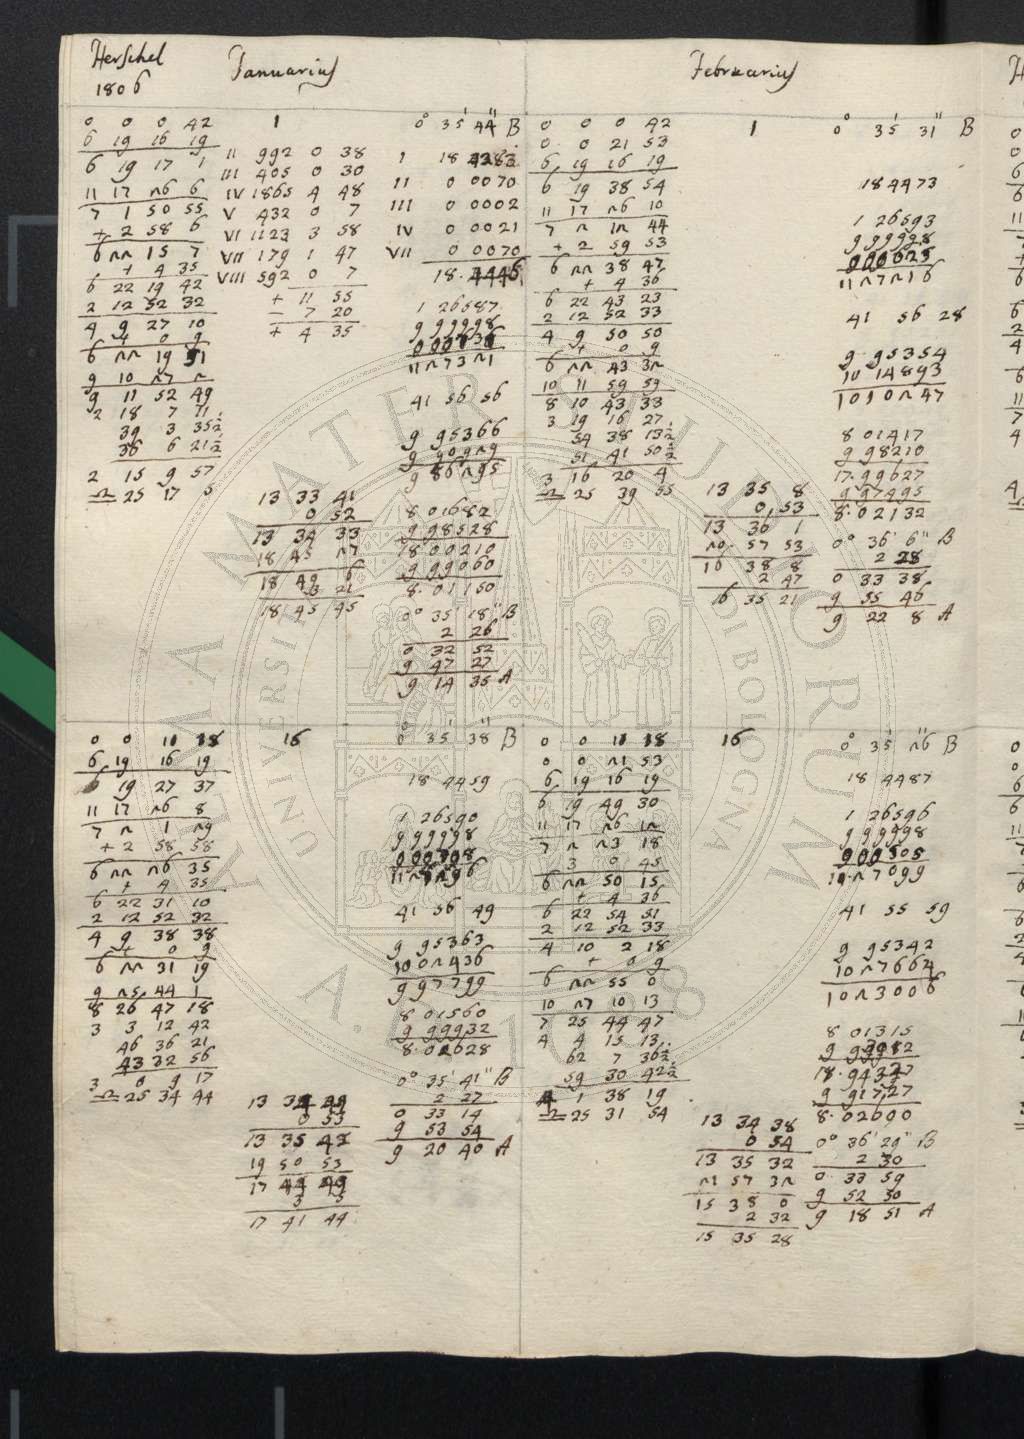 Herschel
1806
Januarius
0 0 0 42
6 19 16 19
6 19 17 1
11 17 26 6
7 1 50 55
+ 2 58 6
6 22 15 7
+ 4 35
6 22 19 42
2 12 52 32
4 9 27 10
+ 0 9
6 22 19 51
9 10 27 2
9 11 52 49
2 18 7 11
39 3 35½
36 6 21½
2 15 9 57
♎ 25 17 5
1
II 992 0 38
III 405 0 30
IV 1865 4 48
V 432 0 7
VI 1123 3 58
VII 179 1 47
VIII 592 0 7
+ 11 55
− 7 20
+ 4 35
13 33 41
0 52
13 34 33
18 45 27
18 49 6
3 21
18 45 45
0° 35' 44" B
I 18 4283
II 0 0070
III 0 0002
IV 0 0021
VII 0 0070
18. 4446
1 26587
9 99998
11 27321
41 56 56
9 95366
9 90929
9 86295
8 01682
9 98528
18 00210
9 99060
8. 01150
0° 35' 18" B
2 26
0 32 52
9 47 27
9 14 35 A
Februarius
0 0 0 42
0 0 21 53
6 19 16 19
6 19 38 54
11 17 26 10
7 2 12 44
+ 2 59 53
6 22 38 47
+ 4 36
6 22 43 23
2 12 52 33
4 9 50 50
+ 0 9
6 22 43 32
10 11 59 59
8 10 43 33
3 19 16 27
54 38 13½
51 41 50½
3 16 20 4
♎ 25 39 55
1
13 35 8
0,53
13 36 1
20 57 53
16 38 8
2 47
16 35 21
0° 35' 31" B
18 4473
1 26593
9 99998
11 27216
41 56 28
9 95354
10 14893
10 10247
8 01417
9 98210
17. 99627
9 97495
8. 02132
0° 36' 6" B
2 28
0 33 38
9 55 46
9 22 8 A
0 0 11 18
6 19 16 19
6 19 27 37
11 17 26 8
7 2 1 29
+ 2 58 58
6 22 26 35
+ 4 35
6 22 31 10
2 12 52 32
4 9 38 38
+ 0 9
6 22 31 19
9 25 44 1
8 26 47 18
3 3 12 42
46 36 21
43 32 56
3 0 9 17
♎ 25 34 44
16
13 34 49
0 53
13 35 42
19 50 53
17 44 49
3 5
17 41 44
0° 35' 38" B
18 4459
1 26590
9 99998
41 56 49
9 95363
10 02436
9 97799
8 01560
9 99932
8. 01628
0° 35' 41" B
2 27
0 33 14
9 53 54
9 20 40 A
0 0 11 18
0 0 21 53
6 19 16 19
6 19 49 30
11 17 26 12
7 2 23 18
3 0 45
6 22 50 15
+ 4 36
6 22 54 51
2 12 52 33
4 10 2 18
+ 0 9
6 22 55 0
10 27 10 13
7 25 44 47
4 4 15 13
62 7 36½
59 30 42½
4 1 38 19
♎ 25 31 54
16
13 34 38
0 54
13 35 32
21 57 32
15 38 0
2 32
15 35 28
0° 35' 26" B
18 4487
1 26596
9 99998
41 55 59
9 95342
10 27664
10 23006
8 01315
9 91727
8. 02690
0° 36' 29" B
2 30
0 33 59
9 52 50
9 18 51 A
ALMA MATER STUDIORUM
UNIVERSITÀ DI BOLOGNA
A.D. 1088